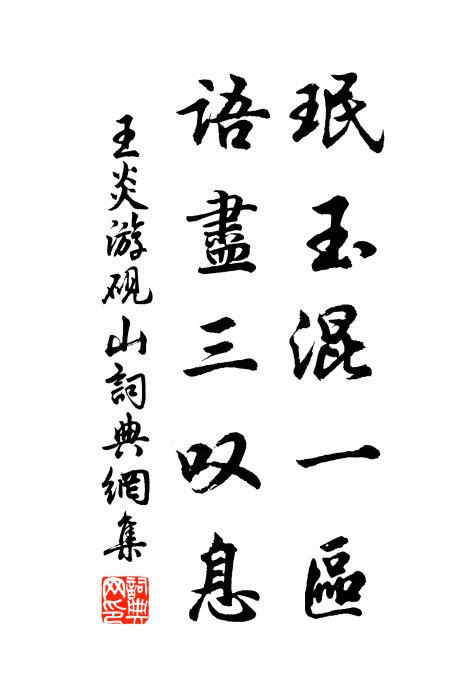 珉玉混一區
語盡三叹息
王炎游硯山詞典網集
詞典网印